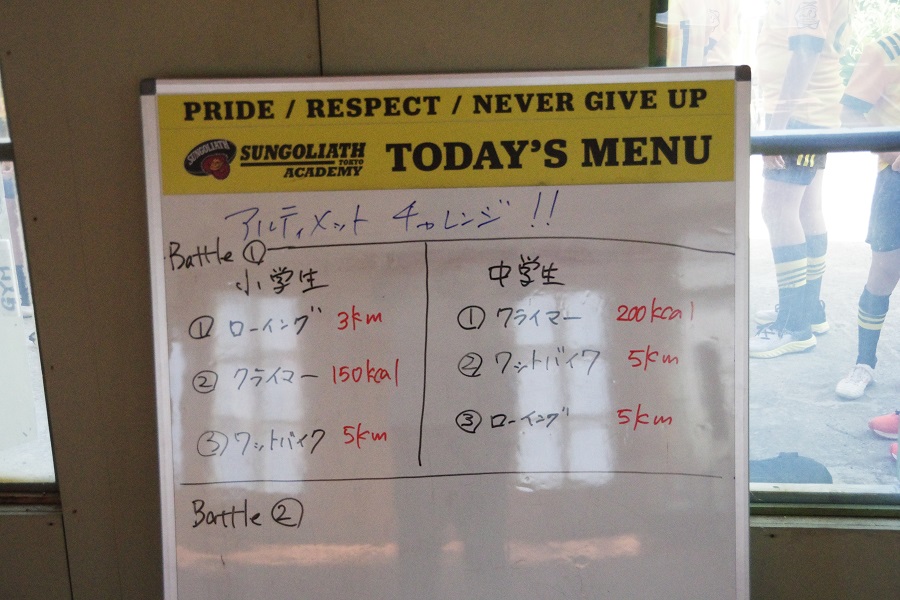 PRIDE / RESPECT / NEVER GIVE UP
SUNGOLIATH
SUNGOLIATH
TOKYO
ACADEMY
TODAY'S MENU
アルティメット チャレンジ !!
Battle ①
小学生
① ローイング 3km
② クライマー 150kcal
③ ワットバイク 5km
中学生
① クライマー 200kcal
② ワットバイク 5km
③ ローイング 5km
Battle ②
GYM